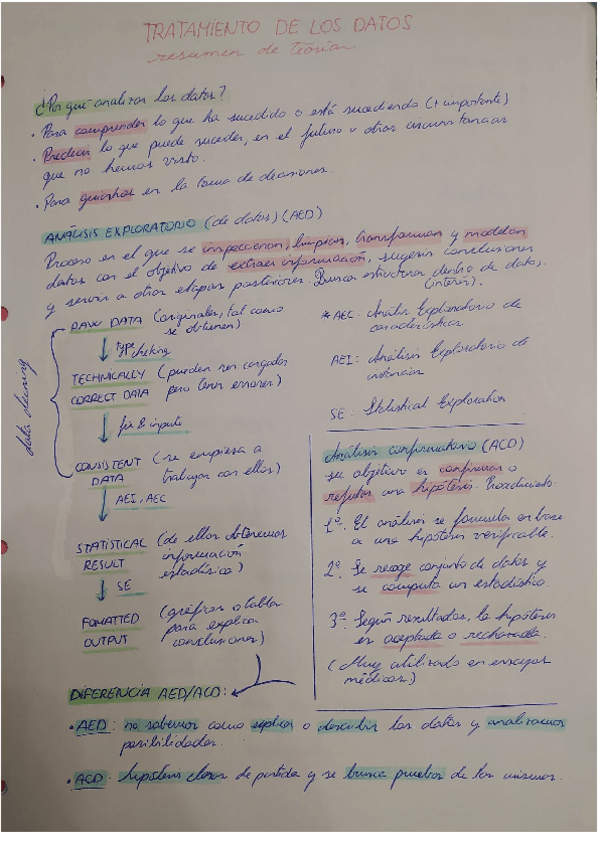 TRATAMIENTO DE LOS DATOS
resumen de teoría
¿Por qué analizar los datos?
· Para comprender lo que ha sucedido o está sucediendo (+ importante)
· Predecir lo que puede suceder, en el futuro u otras circunstancias
que no hemos visto.
· Para guiarnos en la toma de decisiones.
ANÁLISIS EXPLORATORIO (de datos) (AED)
Proceso en el que se inspeccionan, limpian, transforman y modelan
datos con el objetivo de extraer información, sugerir conclusiones
y servir a otras etapas posteriores. Busca estructuras dentro de datos,
(interés).
data cleaning
RAW DATA (originales, tal como
se obtienen)
type checking
TECHNICALLY (pueden ser cargados
CORRECT DATA pero tener errores)
fix & impute
CONSISTENT (se empieza a
DATA trabajar con ellos)
AEI, AEC
STATISTICAL (de ellos obtenemos
RESULT información
estadística)
SE
FOMATTED (gráficas o tablas
OUTPUT para explicar
conclusiones)
*AEC: Análisis Exploratorio de
características
AEI: Análisis Exploratorio de
instancias
SE: Statistical Exploration
Análisis confirmatorio (ACD)
su objetivo es confirmar o
refutar una hipótesis.
1º: El análisis se formula en base
a una hipótesis verificable.
2º: Se recoge conjunto de datos y
se computa un estadístico.
3º: Según resultados, la hipótesis
es aceptada o rechazada.
(Muy utilizado en ensayos
médicos)
DIFERENCIA AED/ACD:
· AED: no sabemos como explicar o describir los datos y analizamos
posibilidades.
· ACD: hipótesis claras de partida y se busca pruebas de las mismas.